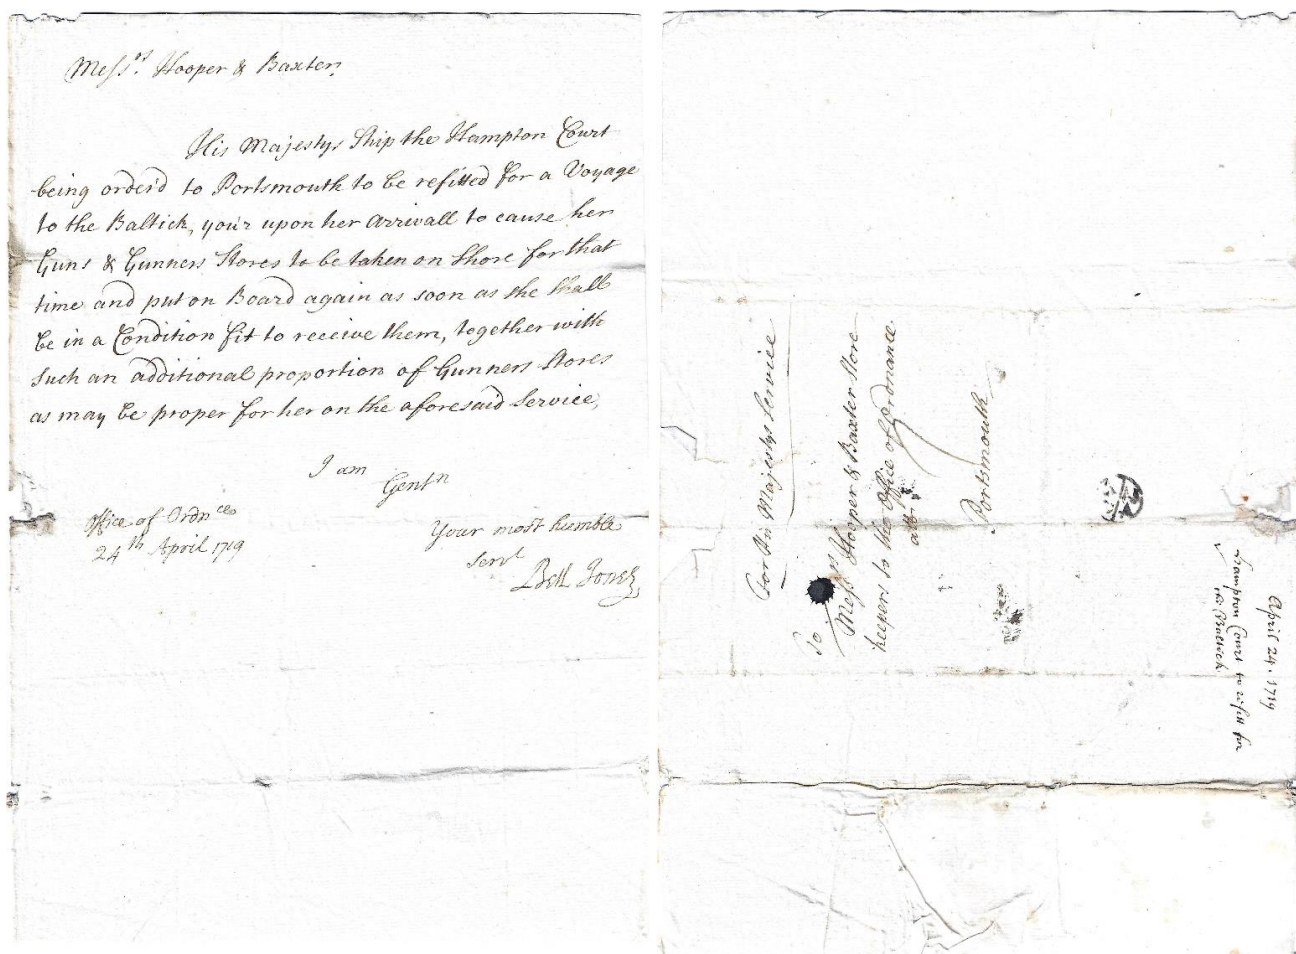 Messrs. Hooper & Baxter,
His Majestys Ship the Hampton Court
being order'd to Portsmouth to be refitted for a Voyage
to the Baltick, you'r upon her Arrivall to cause her
Guns & Gunners Stores to be taken on Shore for that
time and put on Board again as soon as she shall
be in a Condition fit to receive them, together with
such an additional proportion of Gunners Stores
as may be proper for her on the aforesaid Service,
I am
Gentn
Office of Ordnce
24th April 1719
Your most humble
Servt
Bell Jones
For His Majestys Service
To
Messrs Hooper & Baxter Store
keepers to the Office of Ordnance
att
Portsmouth
April 24. 1719
Hampton Court to refitt for
the Baltick